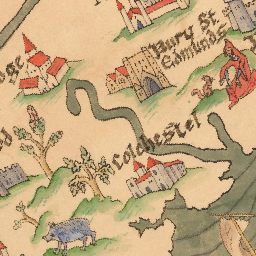 Bury St.
Edmunds
Colchester